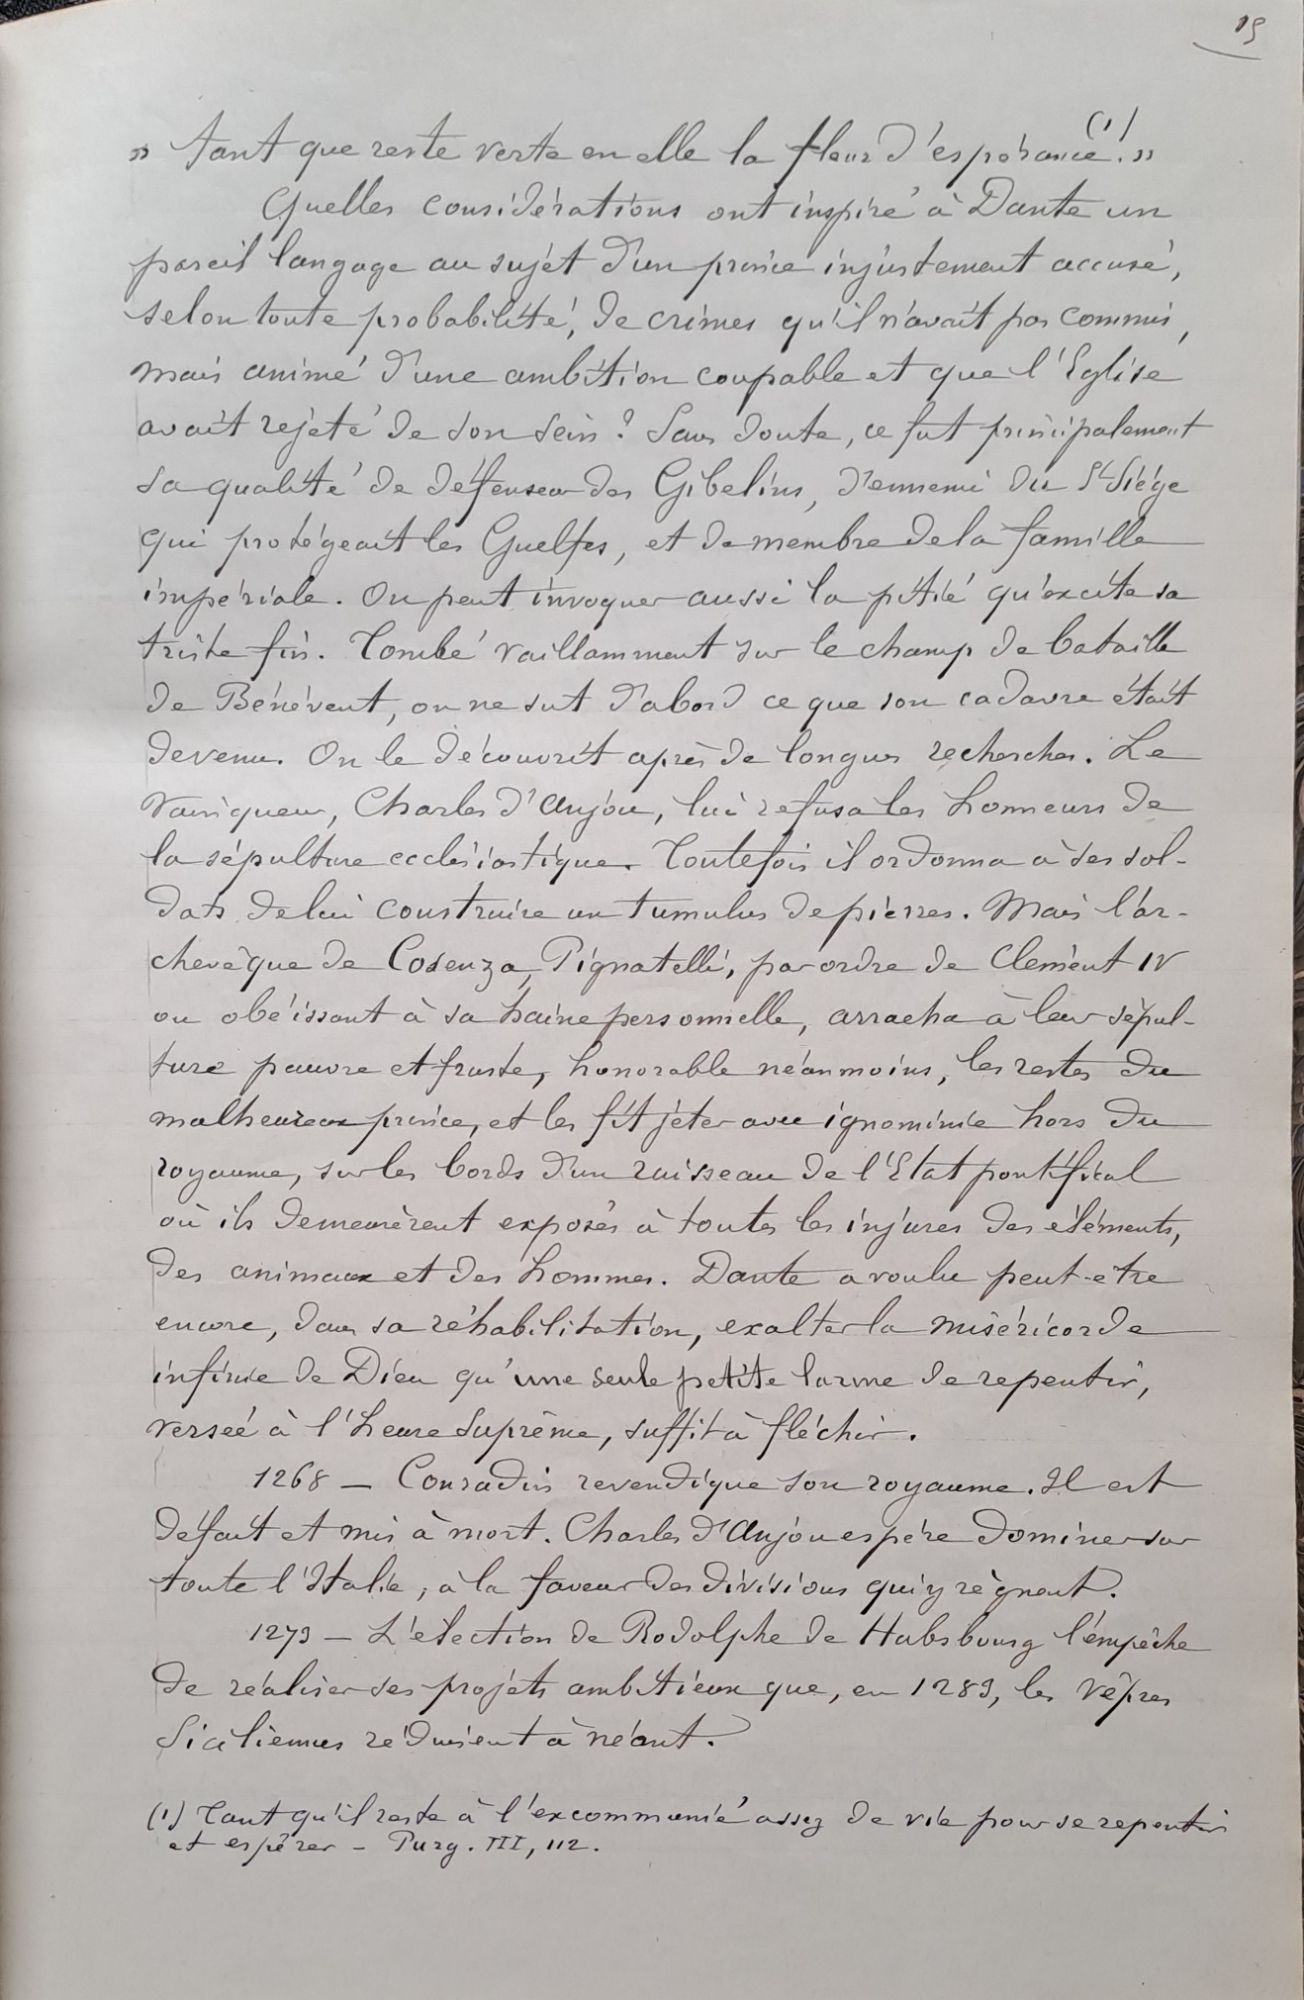 15
" tant que reste verte en elle la fleur d'espérance (1)."
Quelles considérations ont inspiré à Dante un
pareil langage au sujet d'un prince injustement accusé,
selon toute probabilité, de crimes qu'il n'avait pas commis,
mais animé d'une ambition coupable et que l'Eglise
avait rejeté de son sein ? Sans doute, ce fut principalement
sa qualité de défenseur des Gibelins, d'ennemi du St Siége
qui protégeait les Guelfes, et de membre de la famille
impériale. On peut invoquer aussi la pitié qu'excite sa
triste fin. Tombé vaillamment sur le champ de bataille
de Bénévent, on ne sut d'abord ce que son cadavre était
devenu. On le découvrit après de longues recherches. Le
vainqueur, Charles d'Anjou, lui refusa les honneurs de
la sépulture ecclésiastique. Toutefois il ordonna à ses sol-
dats de lui construire un tumulus de pierres. Mais l'ar-
chevêque de Cosenza, Pignatelli, par ordre de Clément IV
ou obéissant à sa haine personnelle, arracha à leur sépul-
ture pauvre et fruste, honorable néanmoins, les restes du
malheureux prince, et les fit jeter avec ignominie hors du
royaume, sur les bords d'un ruisseau de l'Etat pontifical
où ils demeurèrent exposés à toutes les injures des éléments,
des animaux et des hommes. Dante a voulu peut-etre
encore, dans sa réhabilitation, exalter la miséricorde
infinie de Dieu qu'une seule petite larme de repentir,
versée à l'heure suprême, suffit à fléchir.
1268 — Conradin revendique son royaume. Il est
défait et mis à mort. Charles d'Anjou espère dominer sur
toute l'Italie, à la faveur des divisions qui y règnent.
1273 — L'élection de Rodolphe de Habsbourg l'empêche
de réaliser ses projets ambitieux que, en 1283, les Vêpres
Siciliennes réduisent à néant.
(1) Tant qu'il reste à l'excommunié assez de vie pour se repentir
et espérer - Purg. III, 112.